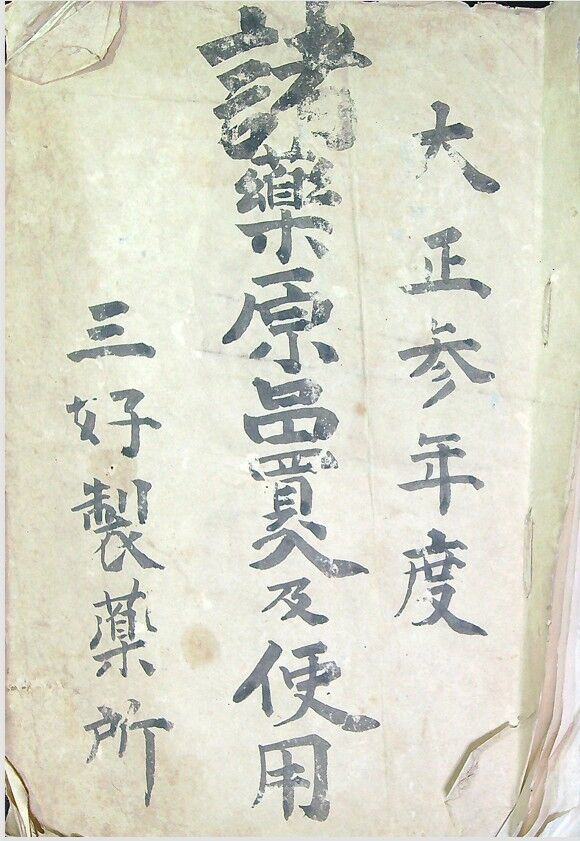 大正参年度
諸藥原品買入及使用
三好製薬所